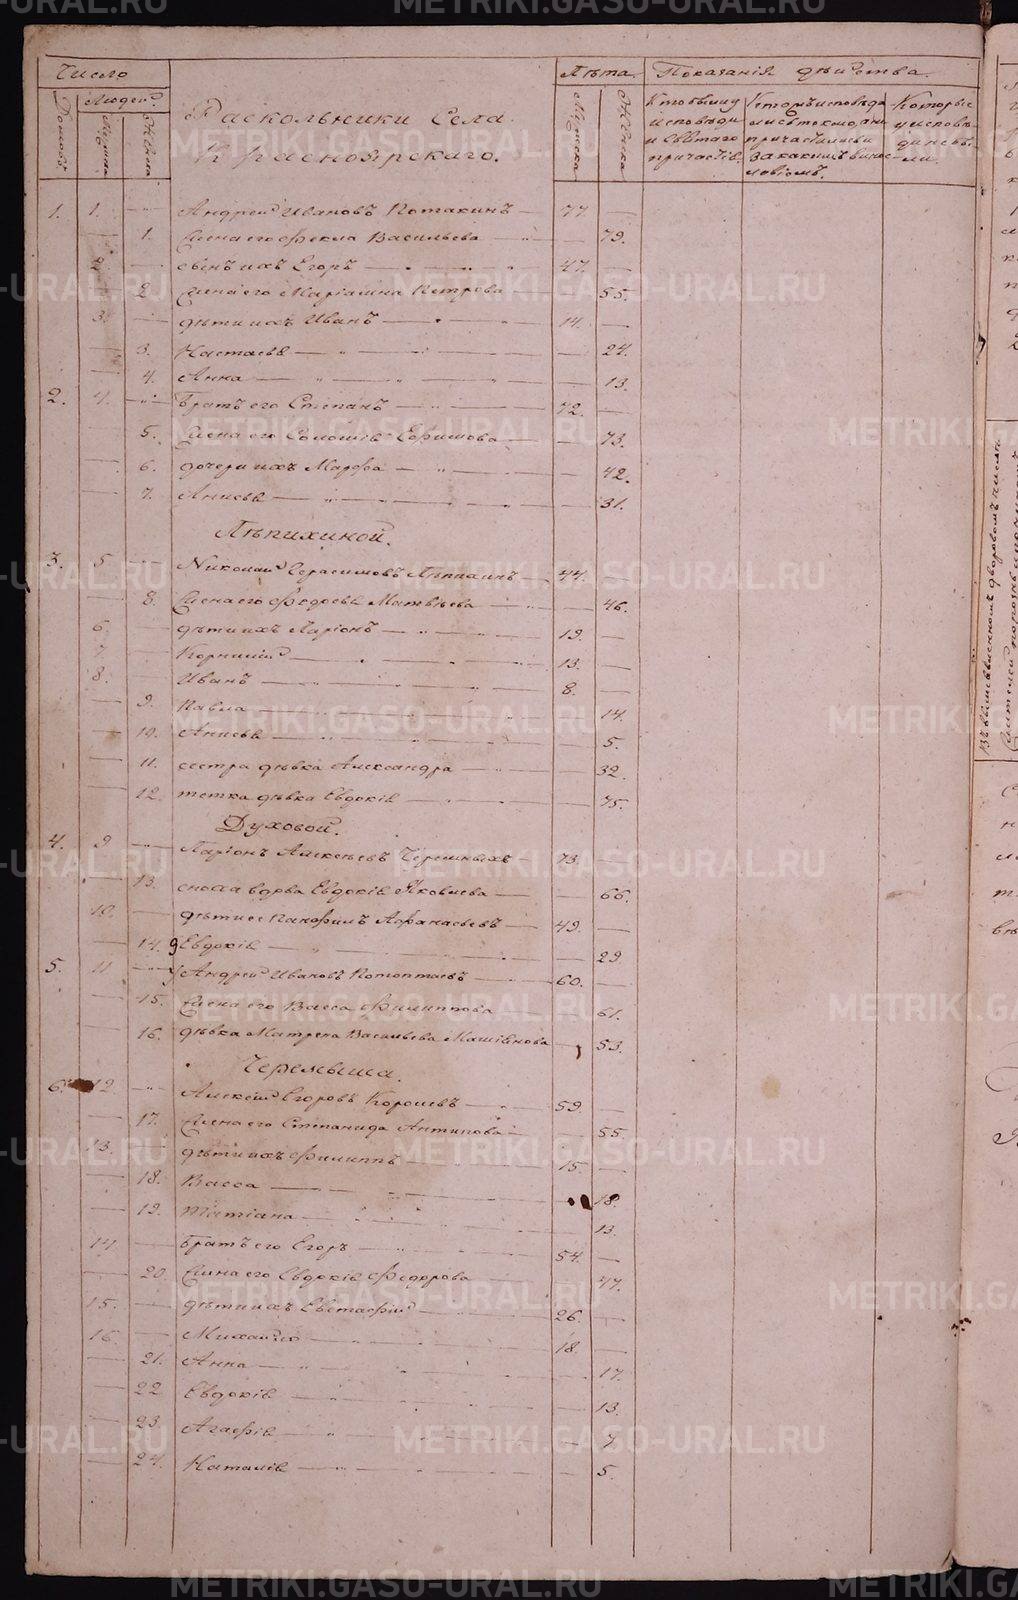 Число
Людей
Домовъ
Мужеска
Женска
Раскольники Села
Красноярскаго.
Лѣта.
Мужеска
Женска
Показанія дѣйства.
Кто былъ у исповѣди и святаго причастія.
Кто исповѣдался токмо, а не причастился и за какимъ винословіемъ.
Которые у исповѣди не были.
1. 1. Андрей Ивановъ Потакинъ 77.
1. Жена его Фекла Васильева 79.
2. сынъ ихъ Егоръ 47.
2. Жена его Маріамна Петрова 55.
3. дѣти ихъ Иванъ 14.
3. Настасья 24.
4. Анна 13.
2. 4. Братъ его Степанъ 72.
5. Жена его Соломія Ефимова 73.
6. дочери ихъ Марфа 42.
7. Анисья 31.
Лѣпихиной.
3. 5 Николай Герасимовъ Лѣпихинъ 44.
8. Жена его Федосья Матвѣева 46.
6. дѣти ихъ Ларіонъ 19.
7. Корнилій 13.
8. Иванъ 8.
9. Павла 14.
10. Анисья 5.
11. сестра дѣвка Александра 32.
12. тетка дѣвка Евдокія 75.
Духовой.
4. 9 Ларіонъ Алексѣевъ Черемныхъ 73.
13. сноха вдова Евдокія Яковлева 66.
10. дѣти ее Панфилъ Афанасьевъ 49.
14. Евдокія 29
5. 11 Андрей Ивановъ 60.
15. Жена его Васса Филиппова 61.
16. дѣвка Матрена Васильева 53.
Черемыша.
6. 12. Алексій Егоровъ Королевъ 59.
17. Жена его Степанида Антипова 55.
13. дѣти ихъ Филиппъ 15.
18. Васса 18.
19. Татіана 13.
14 Братъ его Егоръ 54.
20. Жена его Евдокія Федорова 47.
15. дѣти ихъ Евстафій 26.
16. Михайло 18.
21. Анна 17.
22 Евдокія 13.
23. Агафія 7
24. Наталія 5.
METRIKI.GASO-URAL.RU